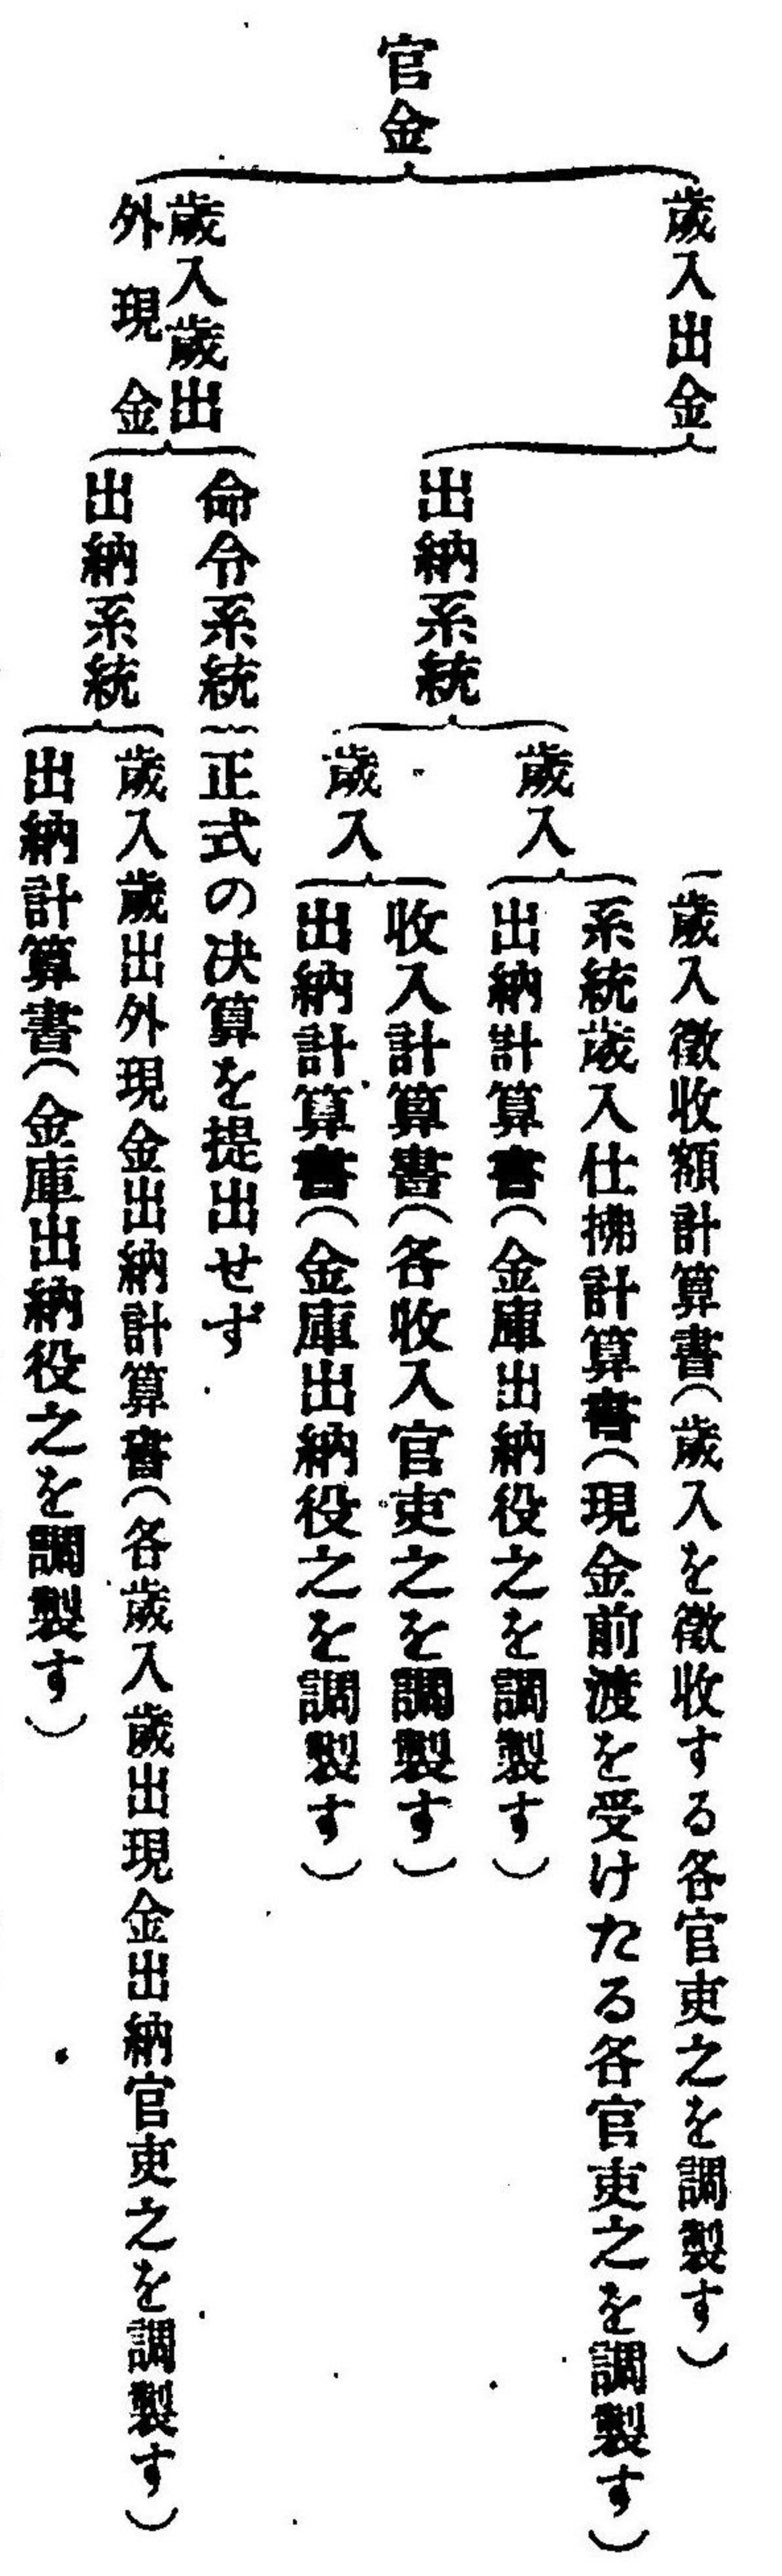 官金
歲入出金
歲入徵收額計算書(歲入を徵收する各官吏之を調製す)
出納系統
歲入
系統歲入仕拂計算書(現金前渡を受けたる各官吏之を調製す)
出納計算書(金庫出納役之を調製す)
歲入
收入計算書(各收入官吏之を調製す)
出納計算書(金庫出納役之を調製す)
歲入歲出
外現金
命令系統
正式の决算を提出せず
出納系統
歲入歲出外現金出納計算書(各歲入歲出現金出納官吏之を調製す)
出納計算書(金庫出納役之を調製す)